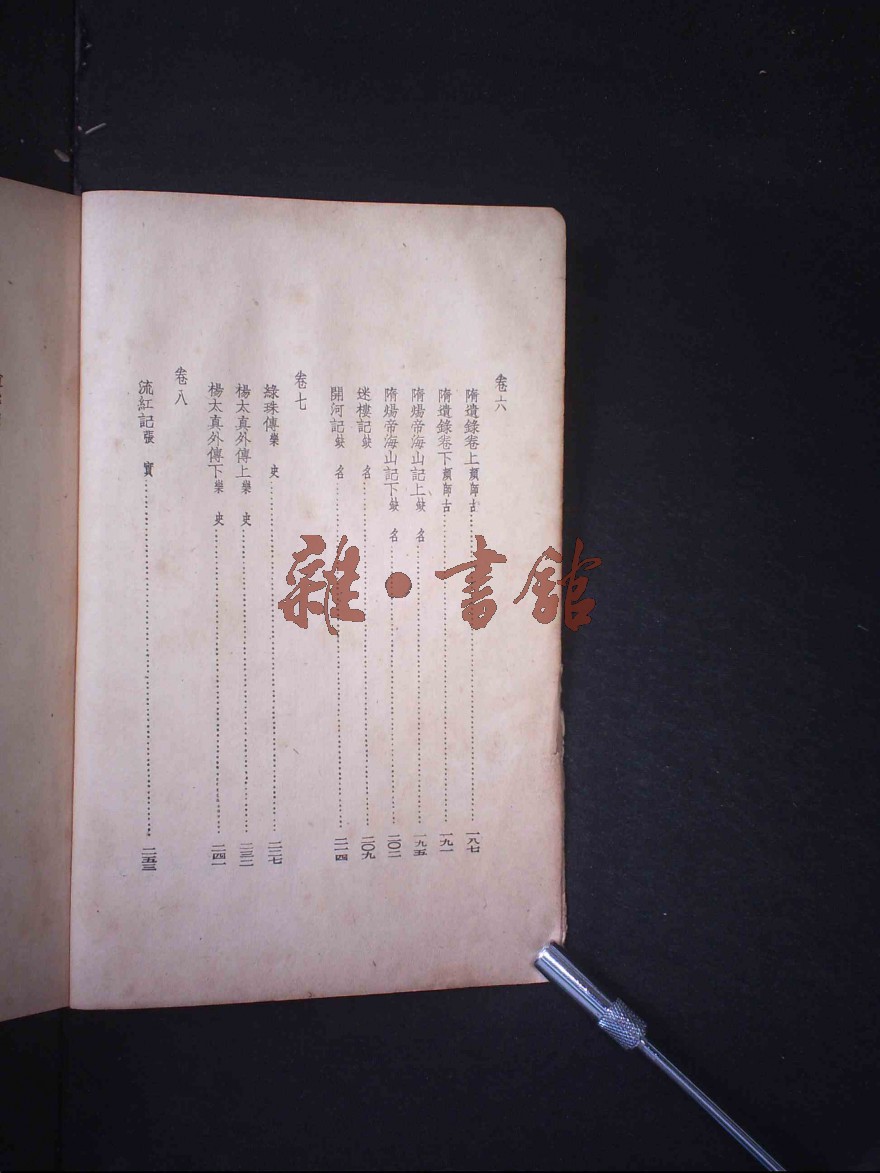 卷六
隋遺錄卷上 顏師古……一八七
隋遺錄卷下 顏師古……一九一
隋煬帝海山記上 缺名……一九五
隋煬帝海山記下 缺名……二〇二
迷樓記 缺名……二〇九
開河記 缺名……二一四
卷七
綠珠傳 樂史……二二七
楊太真外傳上 樂史……二三二
楊太真外傳下 樂史……二四一
卷八
流紅記 張實……二五三
雜·書館